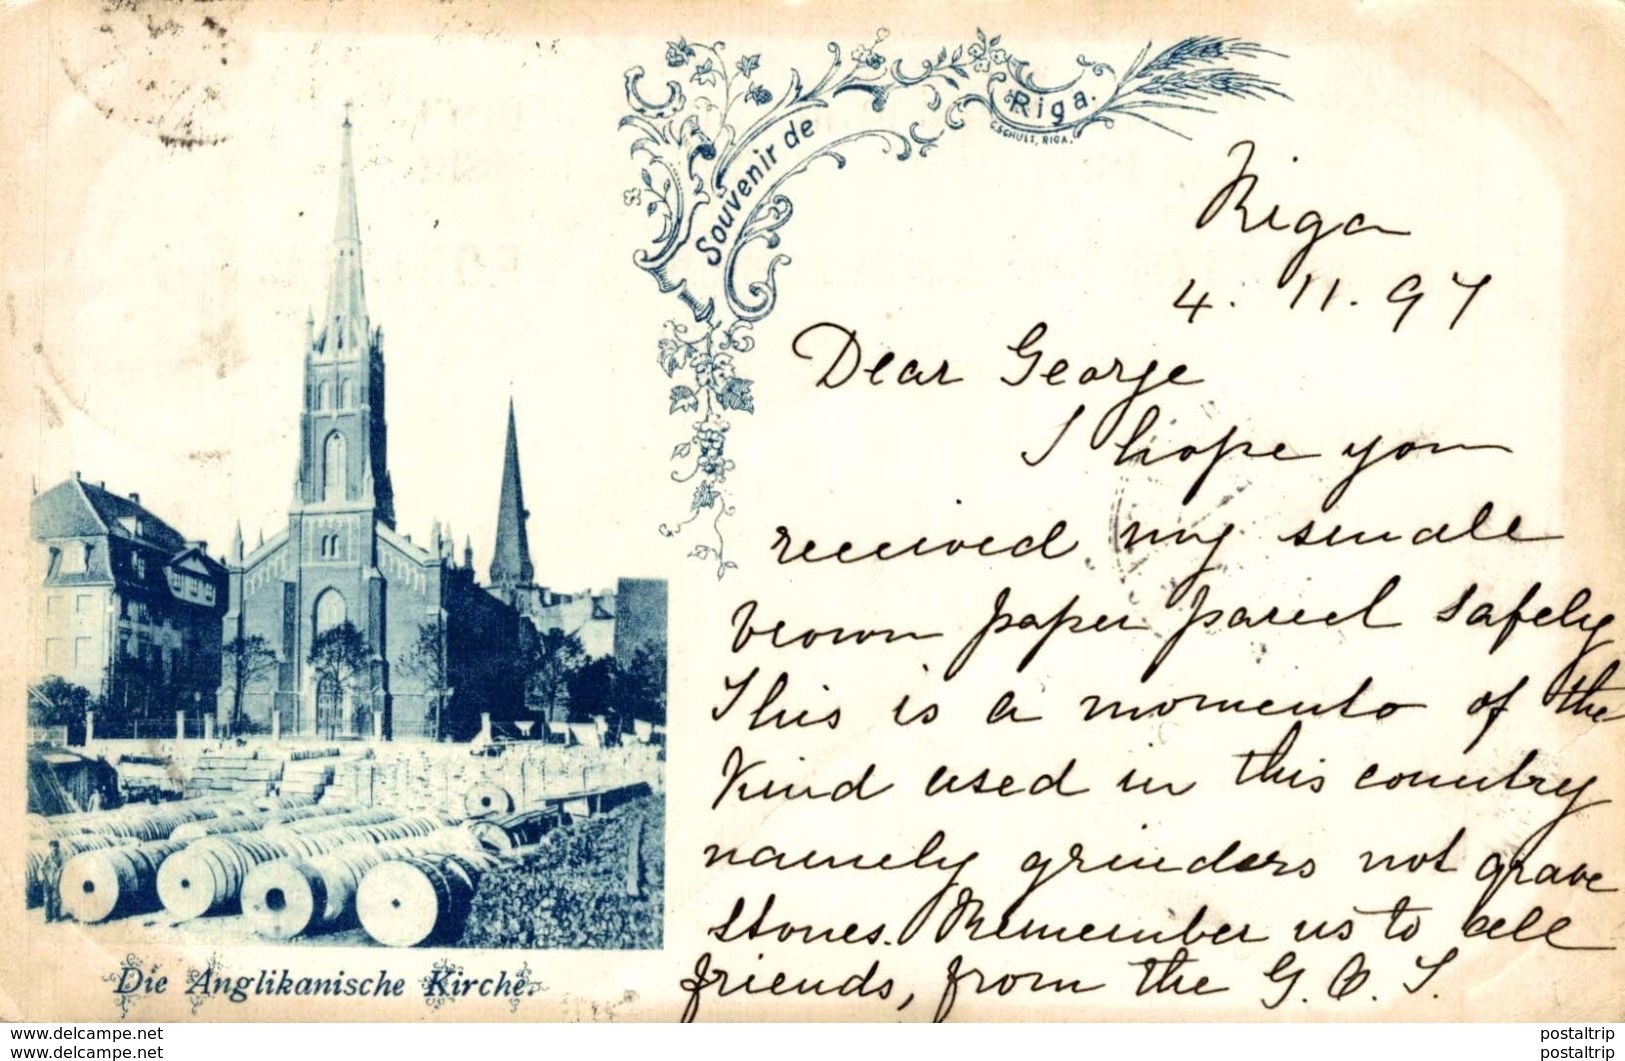 Souvenir de
Riga.
C. SCHULZ, RIGA.
Riga
4. 11. 97
Dear George
I hope you
received my small
brown paper parcel safely
This is a momento of the
kind used in this country
namely grinders not grave
stones. Remember us to all
friends, from the G. O. S.
Die Anglikanische Kirche.
www.delcampe.net
www.delcampe.net
postaltrip
postaltrip